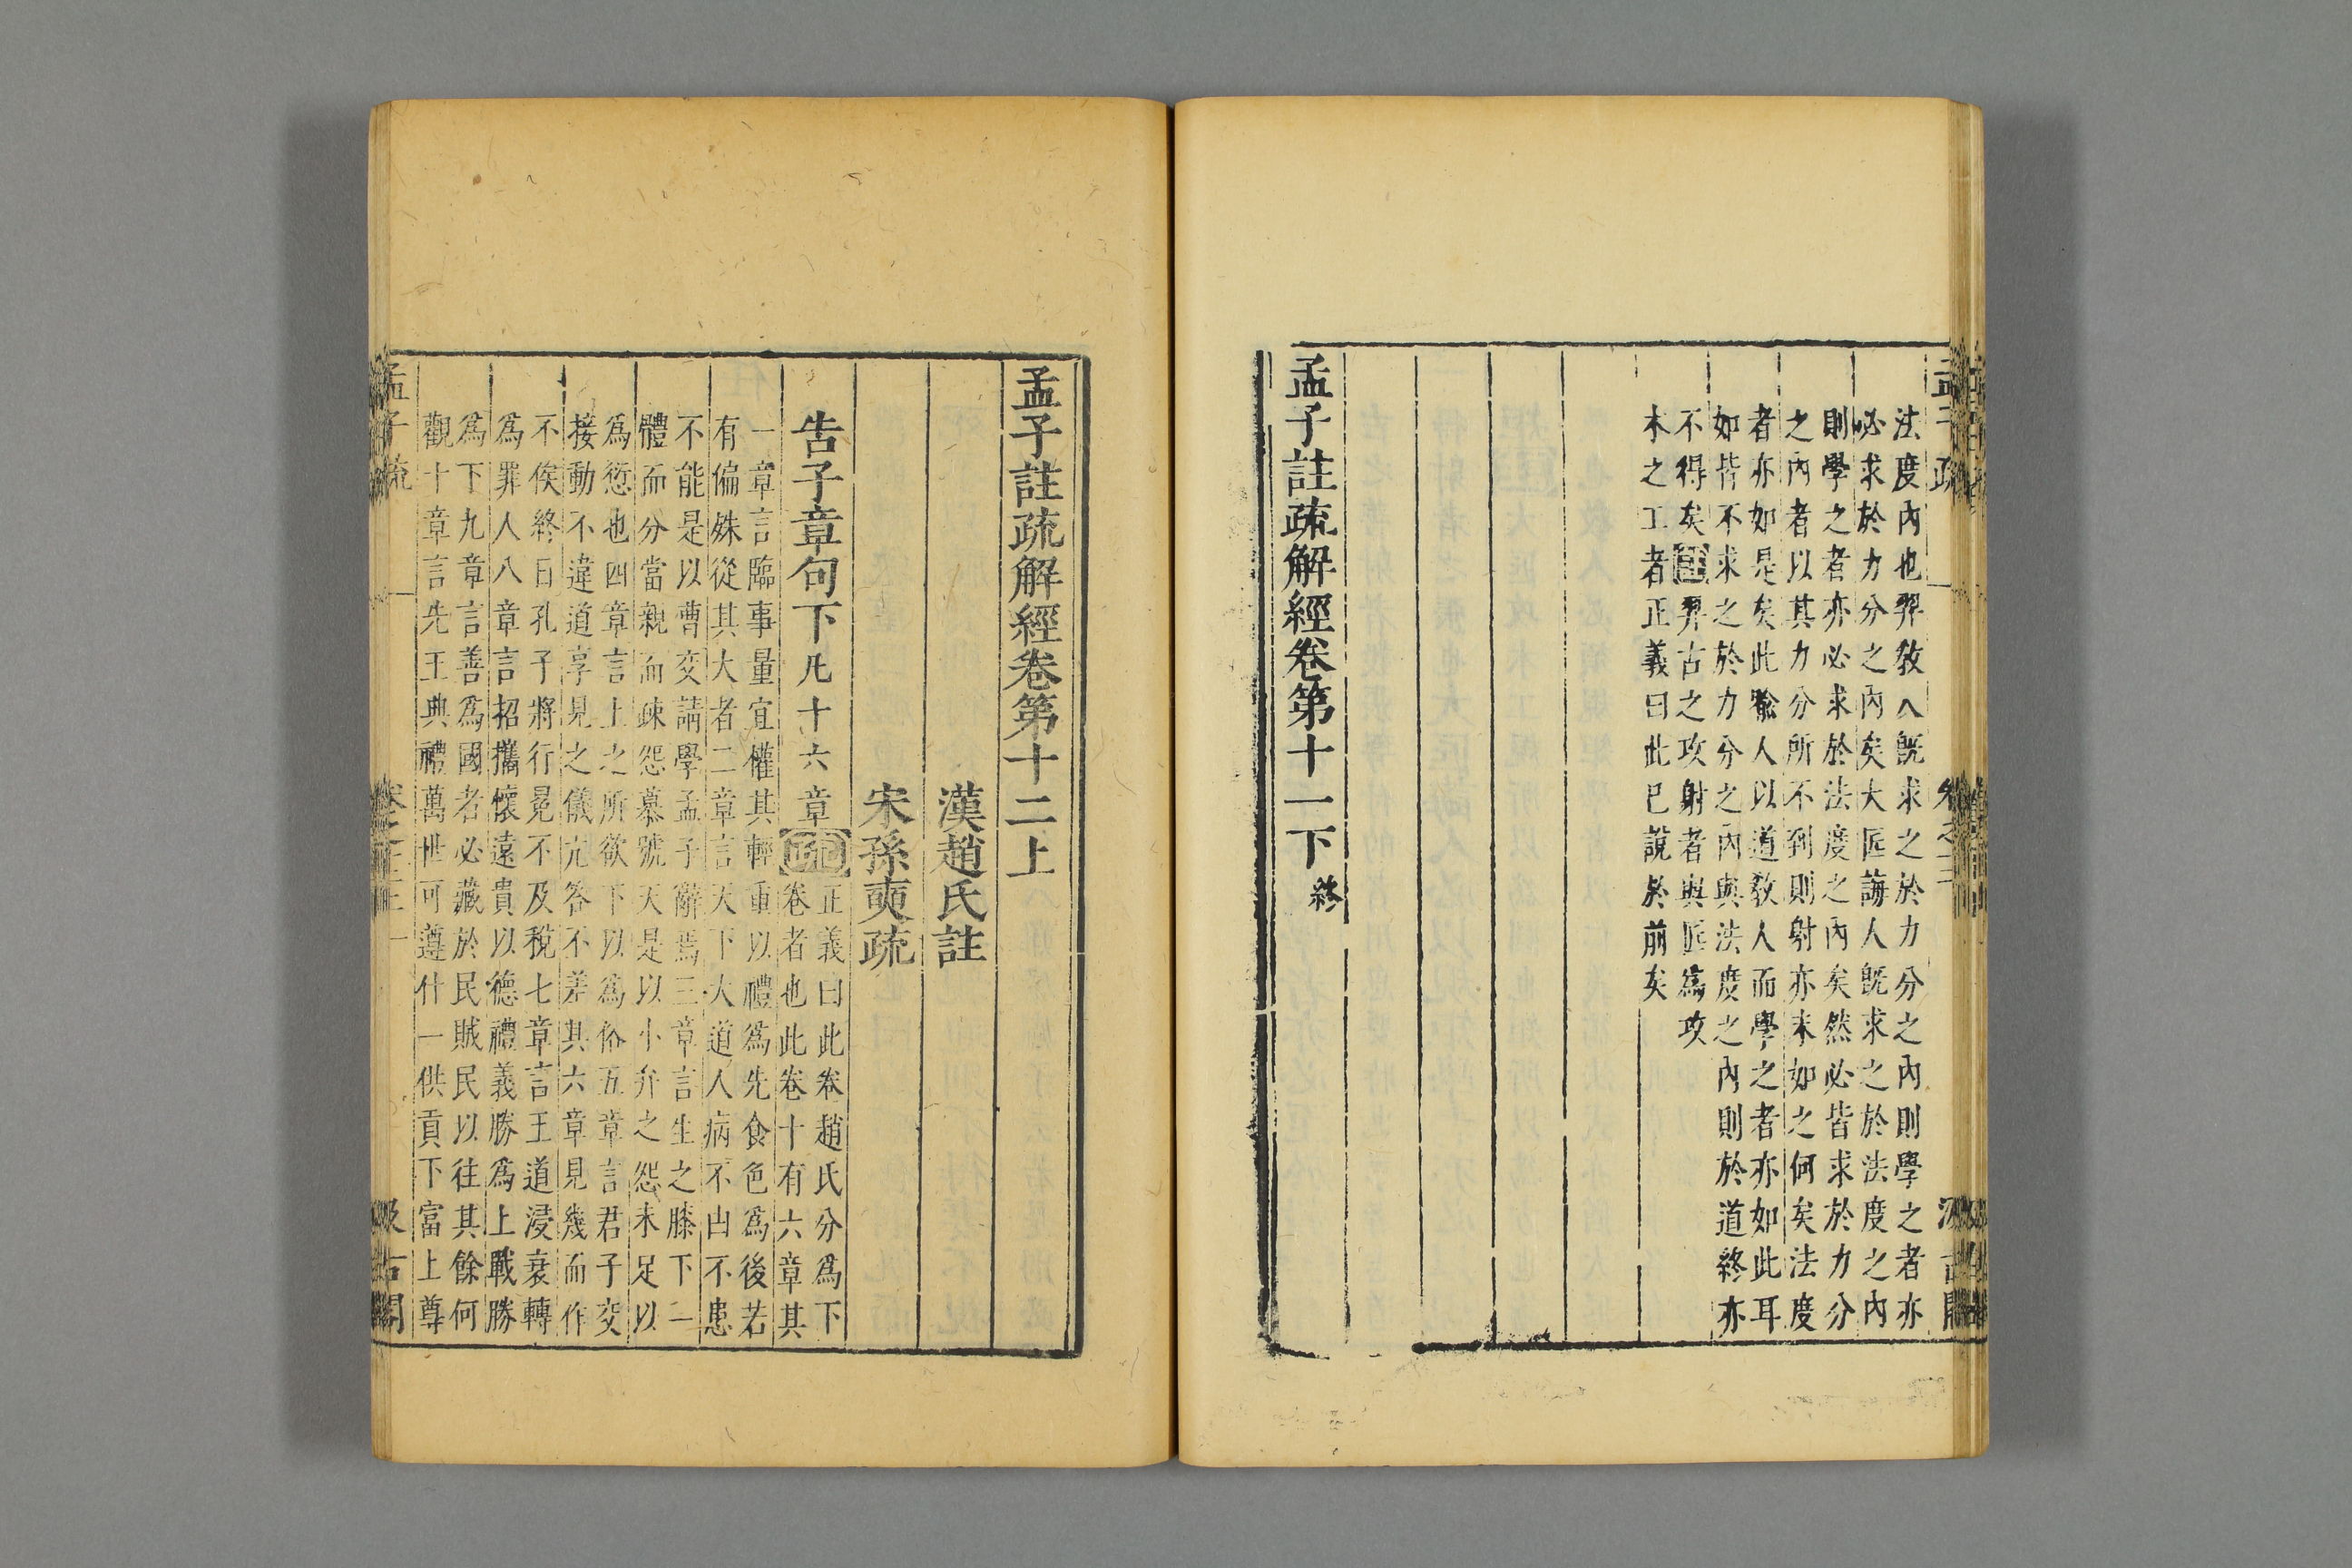 法度內也羿敎人旣求之於力分之內則學之者亦
必求於力分之內矣大匠誨人旣求之於法度之內
則學之者亦必求於法度之內矣然必皆求於力分
之內者以其力分所不到則射亦未如之何矣法度
者亦如是矣此喩人以道敎人而學之者亦如此耳
如皆不求之於力分之內與法度之內則於道終亦
不得矣註羿古之攻射者與匠爲攻
木之工者正義曰此已說於前矣
孟子註疏解經卷第十一下 終
孟子註疏解經卷第十二上
漢趙氏註
宋孫奭疏
告子章句下凡十六章
疏正義曰此卷趙氏分爲下
卷者也此卷十有六章其
一章言臨事量宜權其輕重以禮爲先食色爲後若
有偏殊從其大者二章言天下大道人病不由不患
不能是以曹交請學孟子辭焉三章言生之膝下一
體而分當親而疎怨慕號天是以小弁之怨未足以
爲愆也四章言上之所欲下以爲俗五章言君子交
接動不違道享見之儀亢答不差其六章見幾而作
不俟終日孔子將行冕不及稅七章言王道浸衰轉
爲罪人八章言招攜懷遠貴以德禮義勝爲上戰勝
爲下九章言善爲國者必藏於民賊民以往其餘何
觀十章言先王典禮萬世可遵什一供貢下富上尊
孟子疏
汲古閣